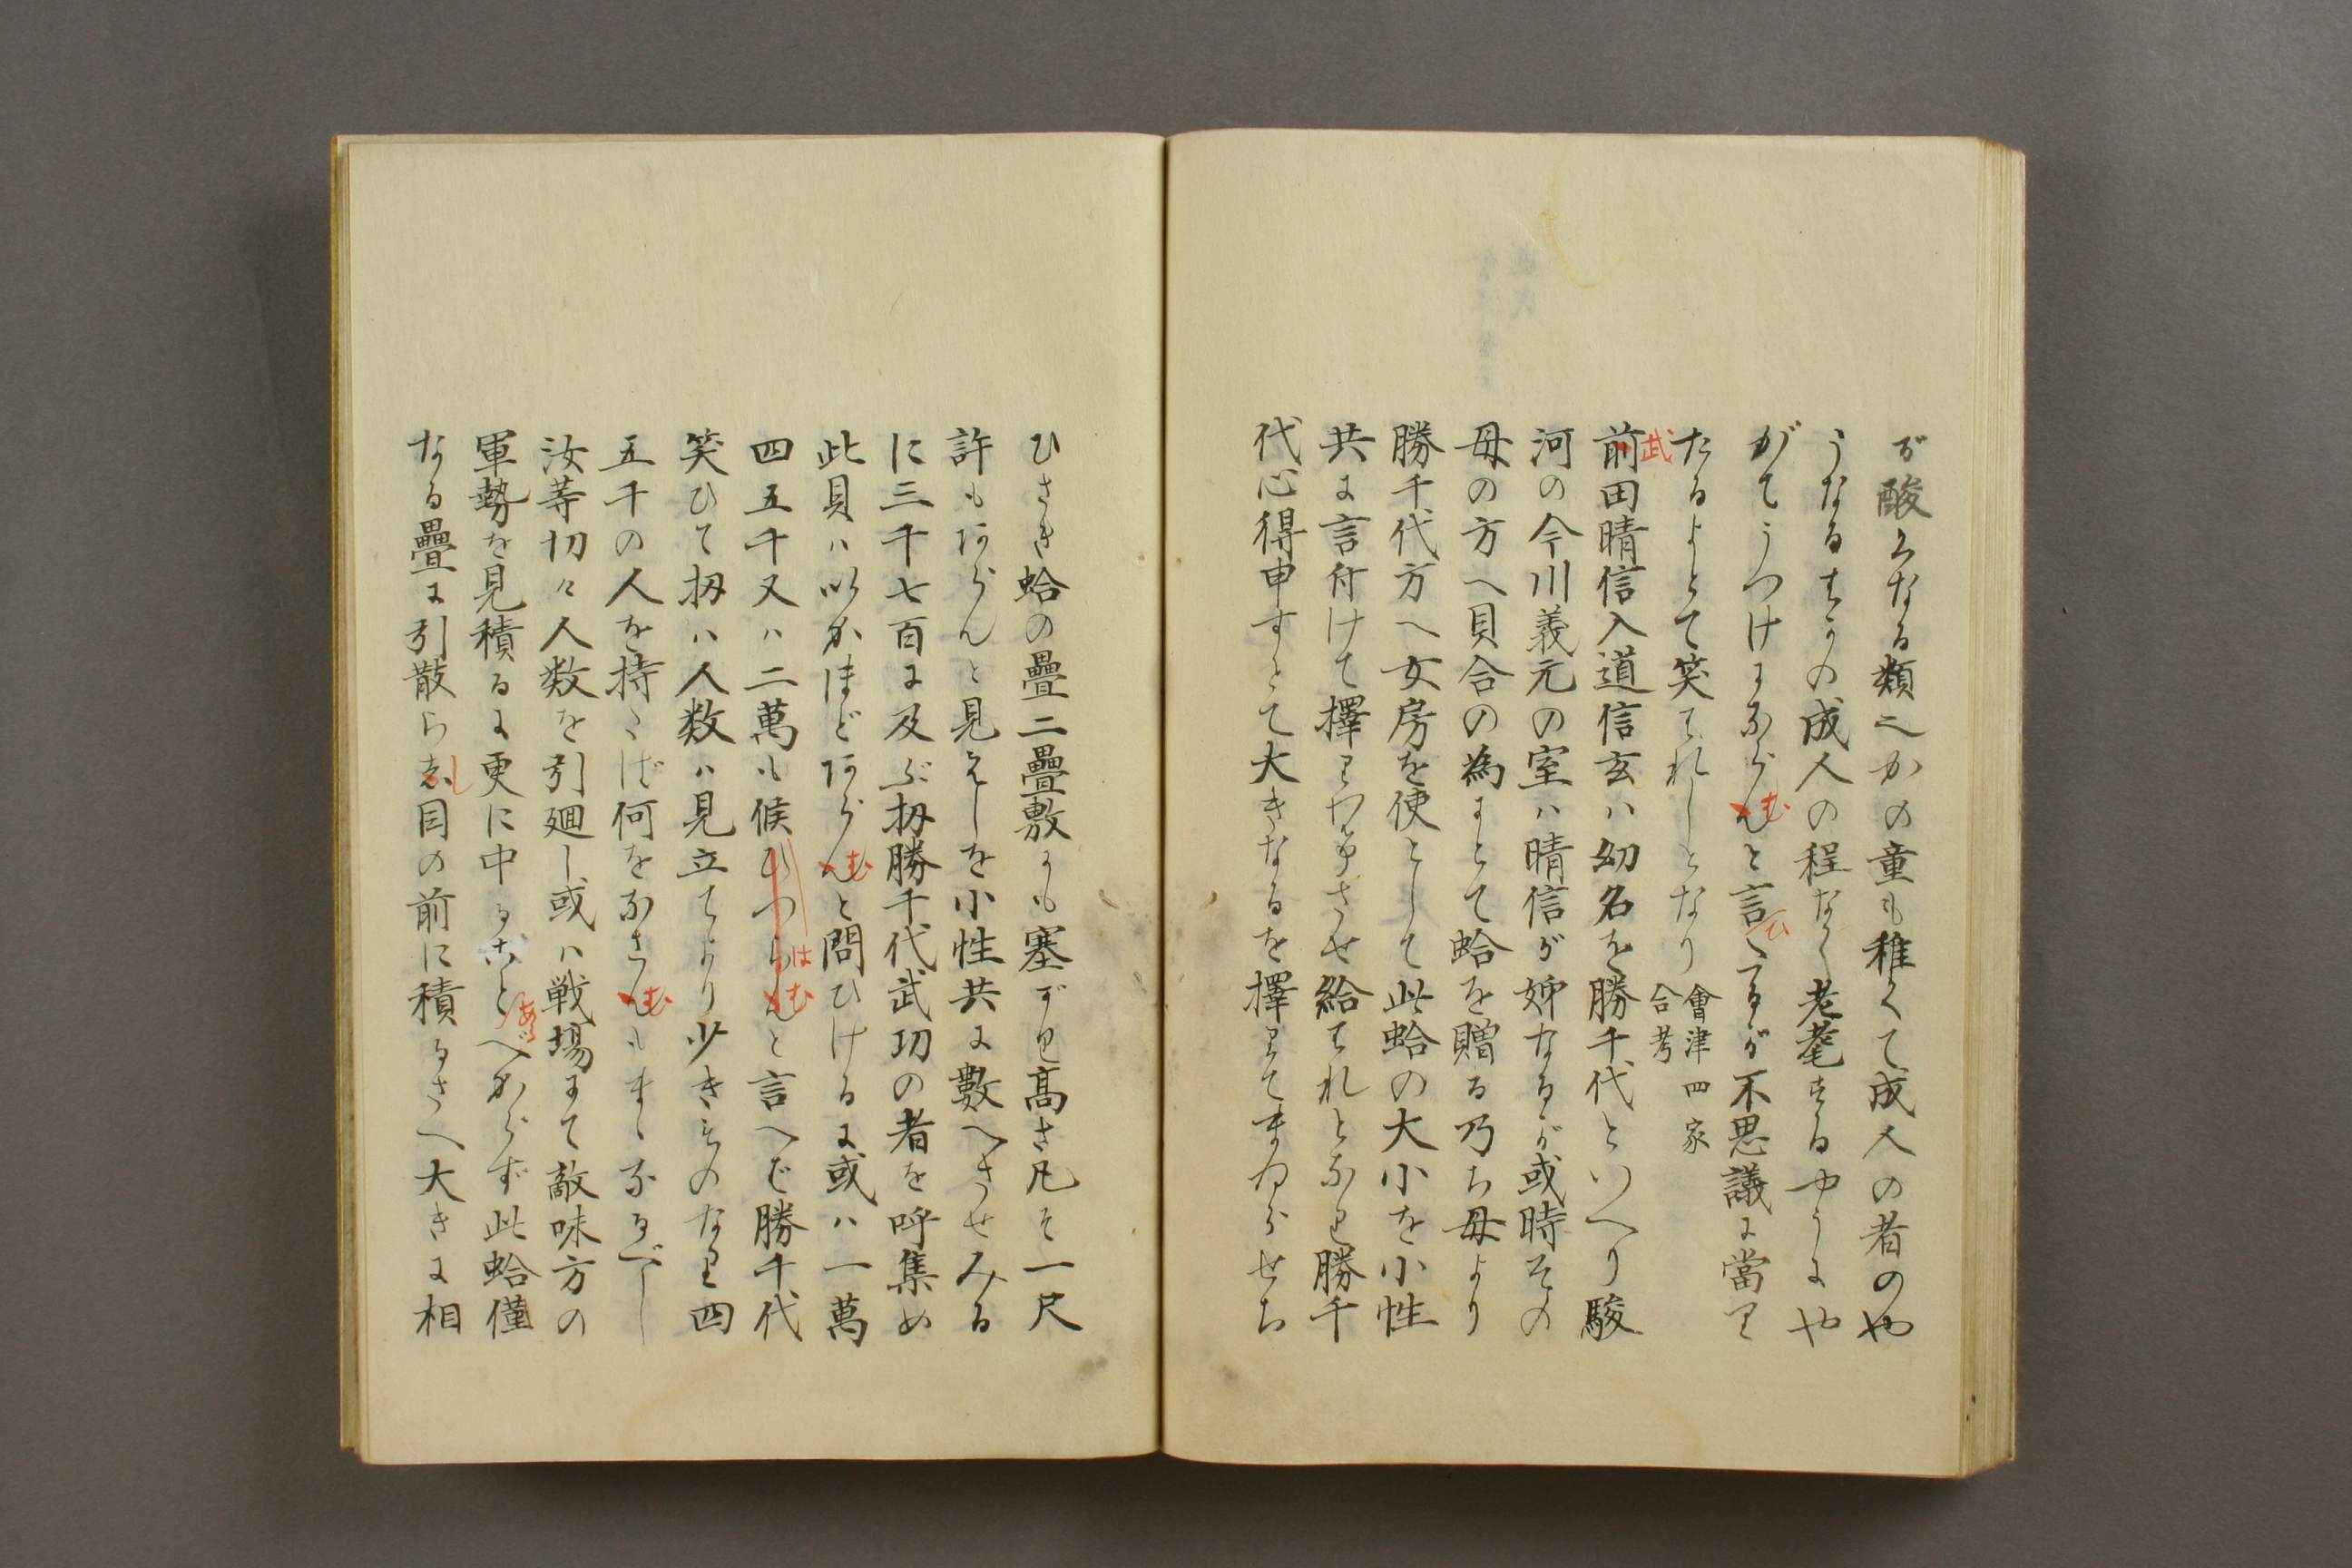 が酸くなる類へかの童も稚くて成人の者のや
うなるはその成人の程なく老耄するやうにや
がてうつけにならんむと言ひたるが不思議に當り
たるよとて笑はれしとなり 會津四家
合考
武
前田晴信入道信玄ハ幼名を勝千代といへり駿
河の今川義元の室ハ晴信が姉なるが或時その
母の方へ貝合の為にとて蛤を贈る乃ち母より
勝千代方へ女房を使として此蛤の大小を小性
共に言付けて擇りわけさせ給はれとなり勝千
代心得申すとて大きなるを擇りてまゐらせち
ひさき蛤の疊二疊敷にも塞がり高さ凡そ一尺
許もあらんと見えしを小性共に數へさせみる
に三千七百に及ぶ扨勝千代武功の者を呼集め
此貝ハいかほどあらんむと問ひけるに或ハ一萬
四五千又ハ二萬も候ひつらんはむと言へば勝千代
笑ひて扨ハ人数ハ見立てより少きものなり四
五千の人を持たば何をなさんむもまゝなるべし
汝等切々人数を引廻し或ハ戦場にて敵味方の
軍勢を見積るに更に中ることあるべからず此蛤僅
なる疊に引散らし目の前に積るさへ大きに相